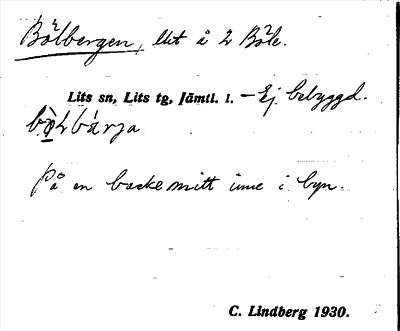 Bölbergen, lllt å 2 Böle.
Lits sn, Lits tg, Jämtl. l. – Ej bebyggd.
bò̱ɫbárja
På en backe mitt inne i byn.
C. Lindberg 1930.